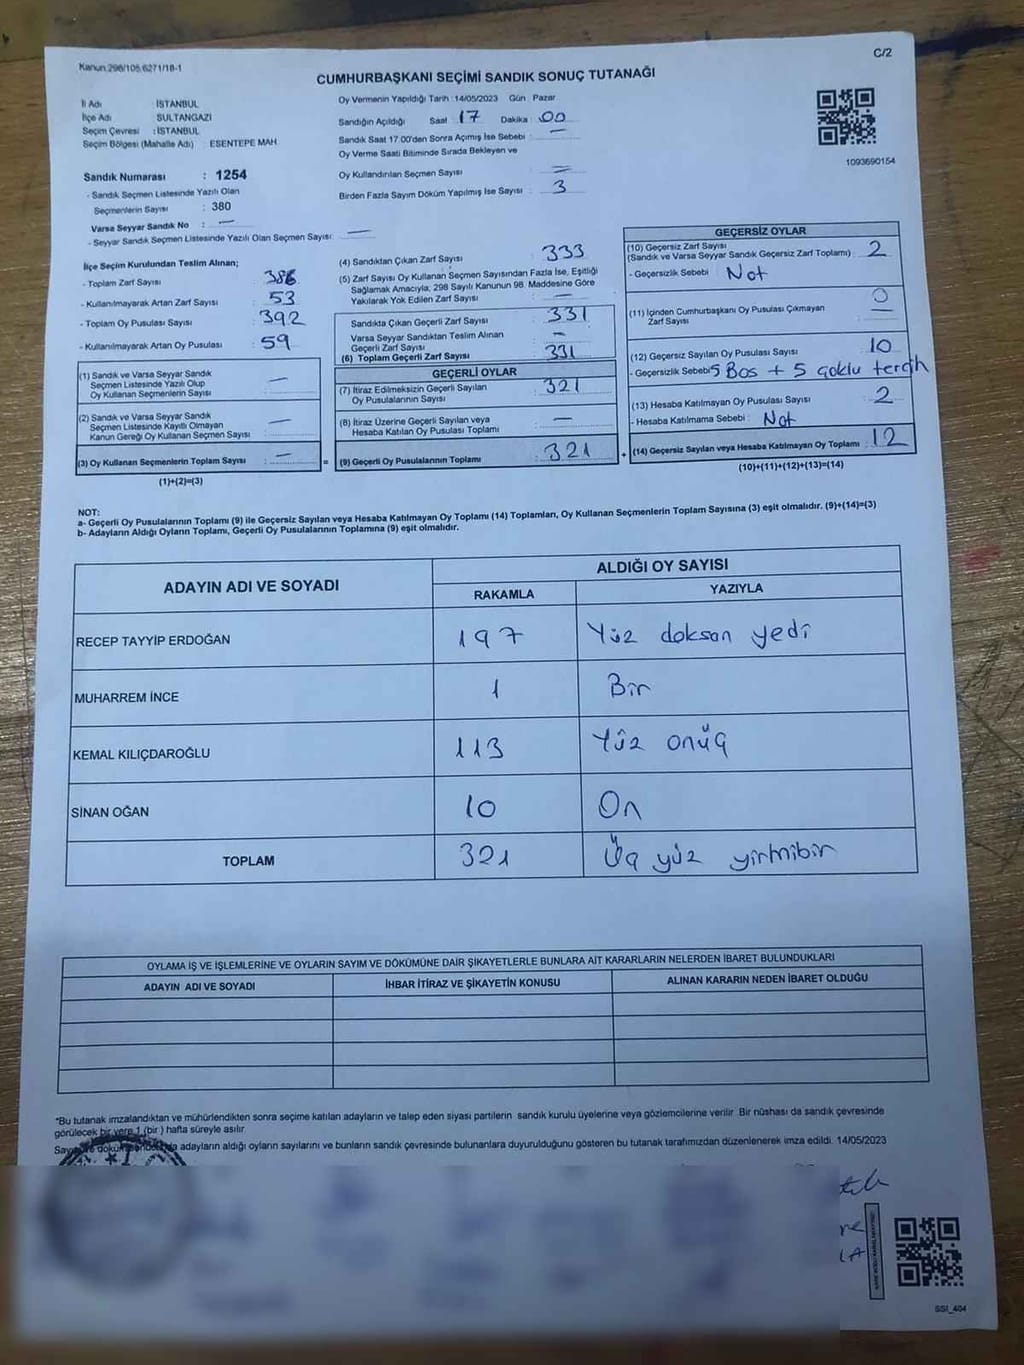 Kanun 298/105.6271/18-1
C/2
CUMHURBAŞKANI SEÇİMİ SANDIK SONUÇ TUTANAĞI
İl Adı İSTANBUL
İlçe Adı SULTANGAZİ
Seçim Çevresi : İSTANBUL
Seçim Bölgesi (Mahalle Adı) : ESENTEPE MAH.
Sandık Numarası : 1254
- Sandık Seçmen Listesinde Yazılı Olan
Seçmenlerin Sayısı : 380
Varsa Seyyar Sandık No : —
- Seyyar Sandık Seçmen Listesinde Yazılı Olan Seçmen Sayısı: —
Oy Vermenin Yapıldığı Tarih :14/05/2023 Gün Pazar
Sandığın Açıldığı Saat 17 Dakika : 00
Sandık Saat 17.00'den Sonra Açımış İse Sebebi : —
Oy Verme Saati Bitiminde Sırada Bekleyen ve
Oy Kullandırılan Seçmen Sayısı : =
Birden Fazla Sayım Döküm Yapılmış İse Sayısı : 3
1093690154
İlçe Seçim Kurulundan Teslim Alınan;
- Toplam Zarf Sayısı : 386
- Kullanılmayarak Artan Zarf Sayısı : 53
- Toplam Oy Pusulası Sayısı : 392
- Kullanılmayarak Artan Oy Pusulası : 59
(1) Sandık ve Varsa Seyyar Sandık
Seçmen Listesinde Yazılı Olup
Oy Kullanan Seçmenlerin Sayısı : —
(2) Sandık ve Varsa Seyyar Sandık
Seçmen Listesinde Kayıtlı Olmayan
Kanun Gereği Oy Kullanan Seçmen Sayısı : —
(3) Oy Kullanan Seçmenlerin Toplam Sayısı : — =
(1)+(2)=(3)
(4) Sandıktan Çıkan Zarf Sayısı : 333
(5) Zarf Sayısı Oy Kullanan Seçmen Sayısından Fazla İse, Eşitliği
Sağlamak Amacıyla; 298 Sayılı Kanunun 98. Maddesine Göre
Yakılarak Yok Edilen Zarf Sayısı : —
Sandıkta Çıkan Geçerli Zarf Sayısı : 331
Varsa Seyyar Sandıktan Teslim Alınan
Geçerli Zarf Sayısı : —
(6) Toplam Geçerli Zarf Sayısı : 331
GEÇERLİ OYLAR
(7) İtiraz Edilmeksizin Geçerli Sayılan
Oy Pusulalarının Sayısı : 321
(8) İtiraz Üzerine Geçerli Sayılan veya
Hesaba Katılan Oy Pusulası Toplamı : —
(9) Geçerli Oy Pusulalarının Toplamı : 321 +
GEÇERSİZ OYLAR
(10) Geçersiz Zarf Sayısı
(Sandık ve Varsa Seyyar Sandık Geçersiz Zarf Toplamı) : 2
- Geçersizlik Sebebi : Not
(11) İçinden Cumhurbaşkanı Oy Pusulası Çıkmayan
Zarf Sayısı 0 —
(12) Geçersiz Sayılan Oy Pusulası Sayısı : 10
- Geçersizlik Sebebi 5 Boş + 5 çoklu tercih
(13) Hesaba Katılmayan Oy Pusulası Sayısı : 2
- Hesaba Katılmama Sebebi : Not
(14) Geçersiz Sayılan veya Hesaba Katılmayan Oy Toplamı : 12
(10)+(11)+(12)+(13)=(14)
NOT:
a- Geçerli Oy Pusulalarının Toplamı (9) ile Geçersiz Sayılan veya Hesaba Katılmayan Oy Toplamı (14) Toplamları, Oy Kullanan Seçmenlerin Toplam Sayısına (3) eşit olmalıdır. (9)+(14)=(3)
b- Adayların Aldığı Oyların Toplamı, Geçerli Oy Pusulalarının Toplamına (9) eşit olmalıdır.
ADAYIN ADI VE SOYADI
ALDIĞI OY SAYISI
RAKAMLA YAZIYLA
RECEP TAYYİP ERDOĞAN 197 Yüz doksan yedi
MUHARREM İNCE 1 Bir
KEMAL KILIÇDAROĞLU 113 Yüz onüç
SİNAN OĞAN 10 On
TOPLAM 321 Üç yüz yirmibir
OYLAMA İŞ VE İŞLEMLERİNE VE OYLARIN SAYIM VE DÖKÜMÜNE DAİR ŞİKAYETLERLE BUNLARA AİT KARARLARIN NELERDEN İBARET BULUNDUKLARI
ADAYIN ADI VE SOYADI İHBAR İTİRAZ VE ŞİKAYETİN KONUSU ALINAN KARARIN NEDEN İBARET OLDUĞU
*Bu tutanak imzalandıktan ve mühürlendikten sonra seçime katılan adayların ve talep eden siyasi partilerin sandık kurulu üyelerine veya gözlemcilerine verilir. Bir nüshası da sandık çevresinde
görülecek bir yere 1 (bir) hafta süreyle asılır.
adayların aldığı oyların sayılarını ve bunların sandık çevresinde bulunanlara duyurulduğunu gösteren bu tutanak tarafımızdan düzenlenerek imza edildi. 14/05/2023
SSI_404